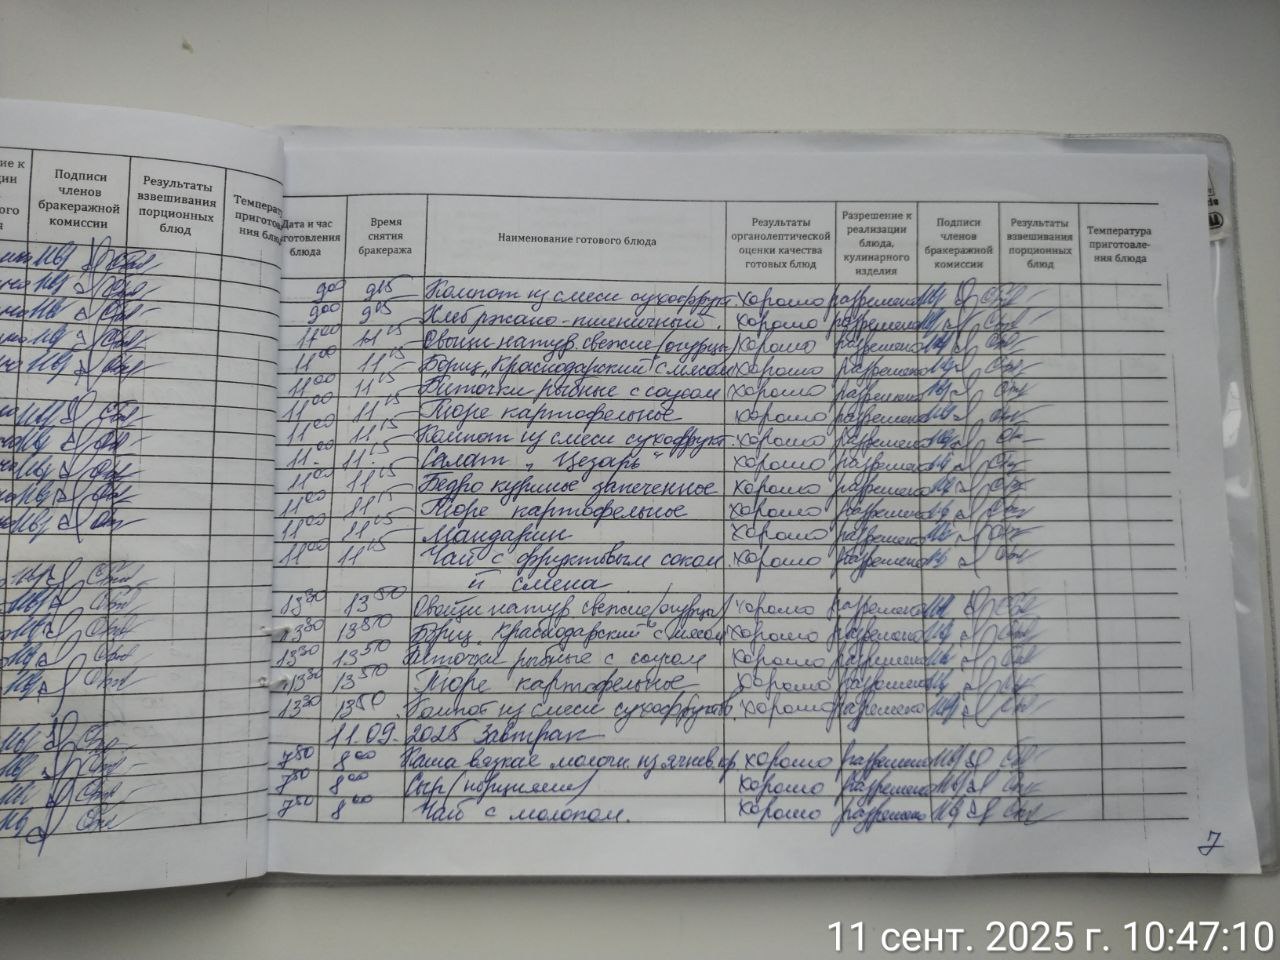 ие к
Подписи членов бракеражной комиссии
Результаты взвешивания порционных блюд
Дата и час
Время снятия бракеража
Наименование готового блюда
Результаты органолептической оценки качества готовых блюд
Разрешение к реализации блюда, кулинарного изделия
Подписи членов бракеражной комиссии
Результаты взвешивания порционных блюд
Температура приготовле-ния блюда
9 00 9 15 Компот из смеси сухофрукт. хорошо разрешено
9 00 9 15 Хлеб ржано-пшеничный. хорошо разрешено
11 00 11 15 Овощи натур свежие/огурцы/ хорошо разрешено
11 00 11 15 Борщ „Краснодарский" с мясом хорошо разрешено
11 00 11 15 Биточки рыбные с соусом хорошо разрешено
11 00 11 15 Пюре картофельное хорошо разрешено
11 00 11 15 Компот из смеси сухофрукт. хорошо разрешено
11 00 11 15 Салат „Цезарь" хорошо разрешено
11 00 11 15 Бедро куриное запеченное хорошо разрешено
11 00 11 15 Пюре картофельное хорошо разрешено
11 00 11 15 Мандарин хорошо разрешено
11 00 11 15 Чай с фруктовым соком. хорошо разрешено
II смена
13 30 13 50 Овощи натур свежие/огурцы/ хорошо разрешено
13 30 13 50 Борщ „Краснодарский" с мясом хорошо разрешено
13 30 13 50 Биточки рыбные с соусом хорошо разрешено
13 30 13 50 Пюре картофельное хорошо разрешено
13 30 13 50 Компот из смеси сухофруктов. хорошо разрешено
11.09. 2025 Завтрак
7 50 8 00 Каша вязкая молочн. из ячнев. кр хорошо разрешено
7 50 8 00 Сыр (порциями) хорошо разрешено
7 50 8 00 Чай с молоком. хорошо разрешено
7
11 сент. 2025 г. 10:47:10